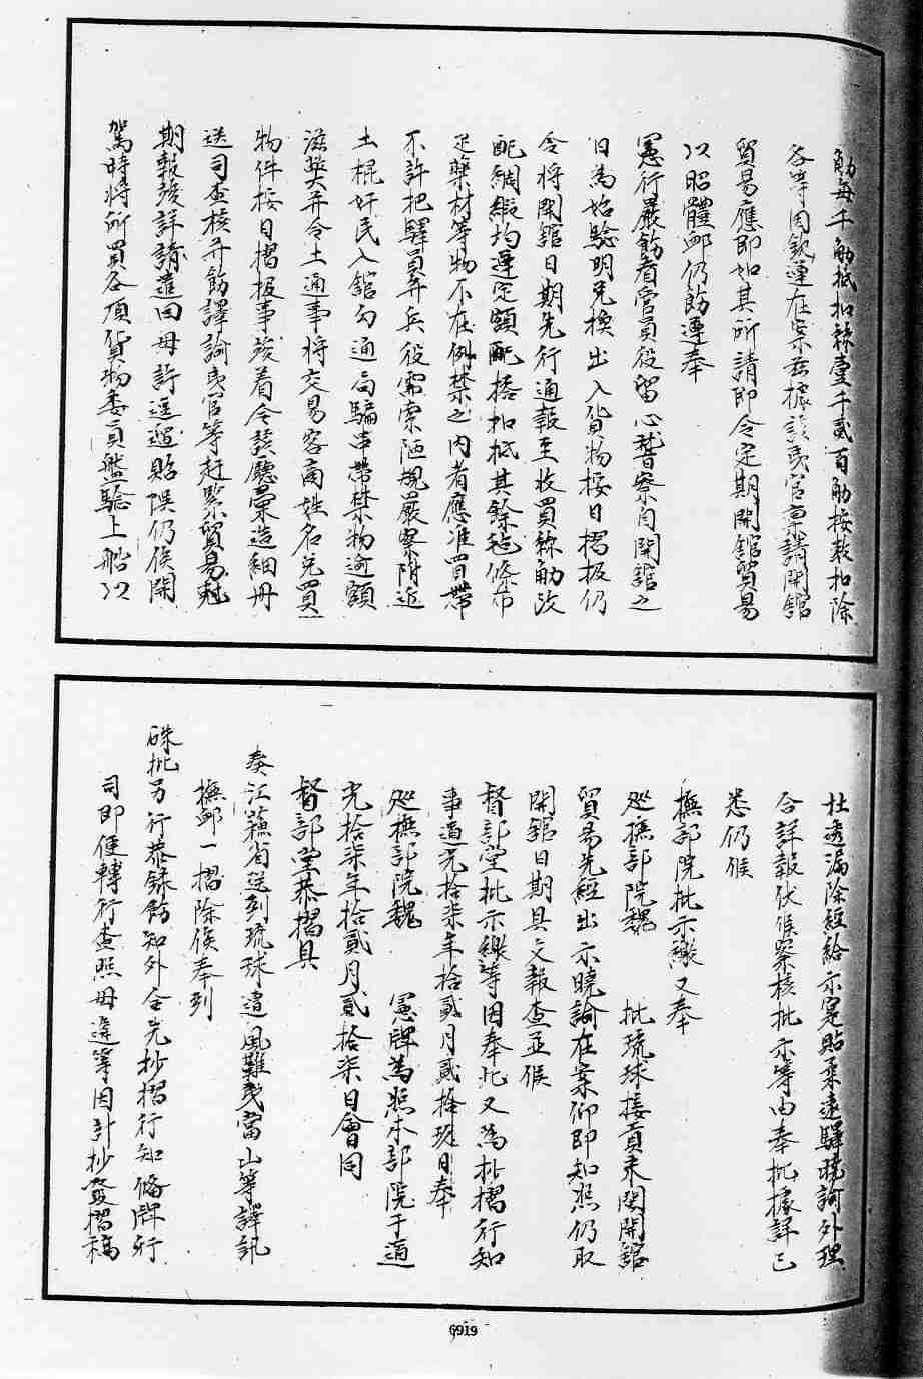 觔每千觔抵扣絲壹千貳百觔按数扣除
各等因欽遵在案茲據該夷官禀請開舘
貿易應即如其所請即令定期開舘貿易
以昭體卹仍飭遵奉
憲行嚴飭看管員役留心督察自開舘之
日為始驗明兌換出入貨物按日摺报仍
令將開舘日期先行通報至收買絲觔汝
配綢緞均遵定額配搭扣抵其餘毡條布
疋藥材等物不在例禁之内者應准買帶
不許把驛員弁兵役需索陋規嚴察附近
土棍奸民入舘勾通局騙串帶禁物逾額
滋獘并令土通事將交易客商姓名兌買
物件按日摺报事竣着令該廳彙造細册
送司查核并飭譯諭夷官等赶緊貿易尅
期報竣詳請遣回毋許逗遛貽悮仍俟開
駕時將所買各項貨物委員盤驗上船以
杜透漏除經給示寔貼柔遠驛曉諭外理
合詳報伏候察核批示等由奉批據詳已
悉仍候
撫部院批示繳又奉
廵撫部院魏　批琉球接貢來閩開舘
貿易先經出示曉諭在案仰即知照仍取
開舘日期具文報查並候
督部堂批示繳等因奉此又為抄摺行知
事道光拾柒年拾貳月貳拾玖日奉
廵撫部院魏　憲牌為照本部院于道
光拾柒年拾貳月貳拾柒日會同
督部堂恭摺具
奏江蘓省送到琉球遭風難夷當山等譯訊
撫卹一摺除俟奉到
硃批另行恭録飭知外合先抄摺行知俻牌行
司即便轉行查照毋違等因計抄發摺稿
6919